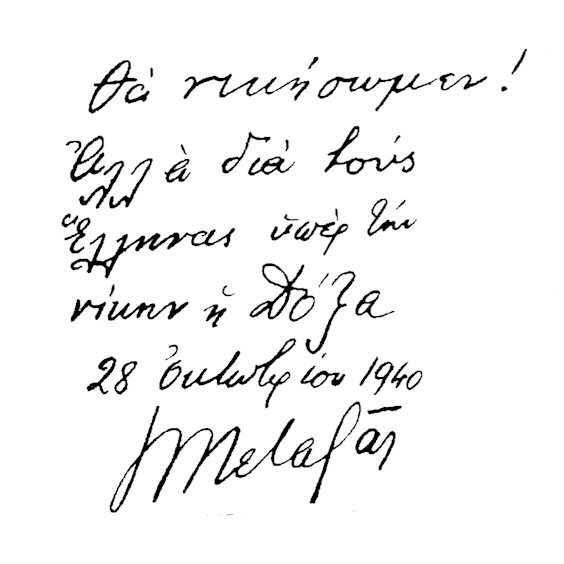 θὰ νικήσωμεν!
Ἀλλὰ διὰ τούς
Ἕλληνας ὑπὲρ τήν
νίκην ἡ Δόξα
28 Ὀκτωβρίου 1940
Ἰ Μεταξᾶς